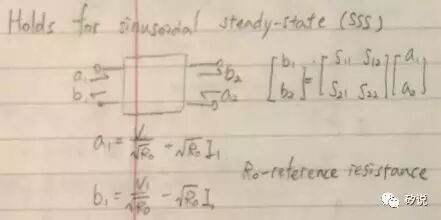 Holds for sinusoidal steady-state (SSS)
a₁ b₁ b₂ a₂
[b₁ b₂] = [S₁₁ S₁₂ S₂₁ S₂₂] [a₁ a₂]
a₁ = V₁/√R₀ - √R₀ I₁
R₀-reference resistance
b₁ = V₁/√R₀ - √R₀ I₁
矽说